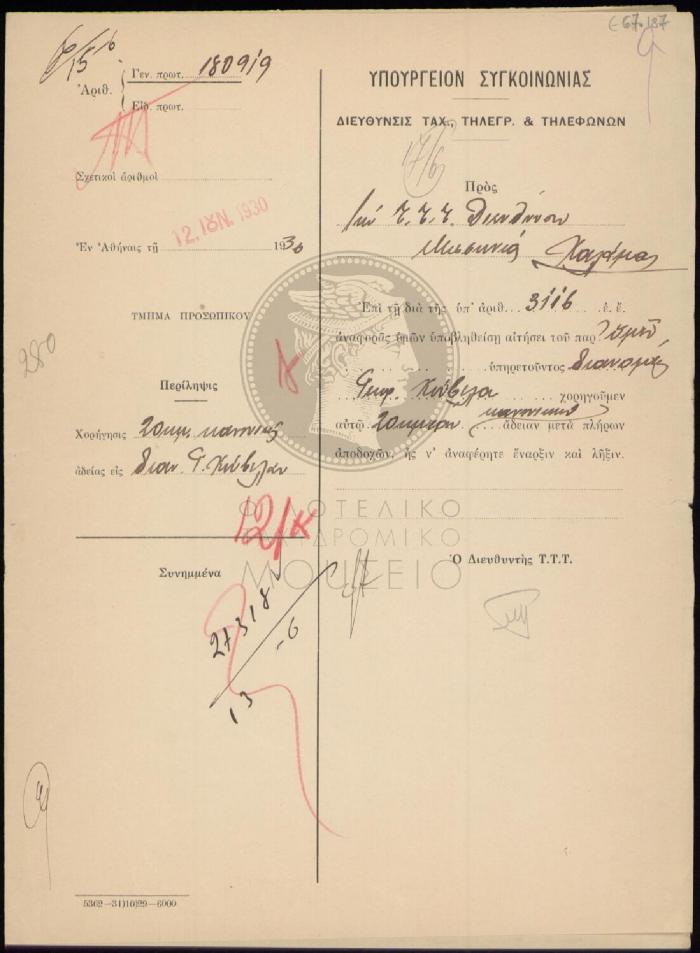 67.187
15/6
Ἀριθ.
Γεν. πρωτ. 18099
Εἰδ. πρωτ.
Σχετικοὶ ἀριθμοὶ
12. ΙΟΥΝ. 1930
Ἐν Ἀθήναις τῇ 1930
280
ΤΜΗΜΑ ΠΡΟΣΩΠΙΚΟΥ
Περίληψις
Χορήγησις 20ημ. κανονικῆς
ἀδείας εἰς διαν. Γ.
Συνημμένα
27318
13-6
5362-31)10)29-6000
ΥΠΟΥΡΓΕΙΟΝ ΣΥΓΚΟΙΝΩΝΙΑΣ
ΔΙΕΥΘΥΝΣΙΣ ΤΑΧ., ΤΗΛΕΓΡ. & ΤΗΛΕΦΩΝΩΝ
17/6
Πρὸς
τὴν Τ.Τ.Τ. Διεύθυνσιν
Μεσσηνίας Καλάμας
Ἐπὶ τῇ διὰ τῆς ὑπ' ἀριθ. 3116 ἐ. ἔ.
ἀναφορᾶς ὑμῶν ὑποβληθείσῃ αἰτήσει τοῦ παρ' ὑμῖν
ὑπηρετοῦντος διανομέως
Γεωρ. χορηγοῦμεν
αὐτῷ 20ημερον κανονικὴν ἄδειαν μετὰ πλήρων
ἀποδοχῶν, ἧς ν' ἀναφέρητε ἔναρξιν καὶ λῆξιν.
Ὁ Διευθυντὴς Τ.Τ.Τ.
ΦΙΛΟΤΕΛΙΚΟ
ΤΑΧΥΔΡΟΜΙΚΟ
ΜΟΥΣΕΙΟ